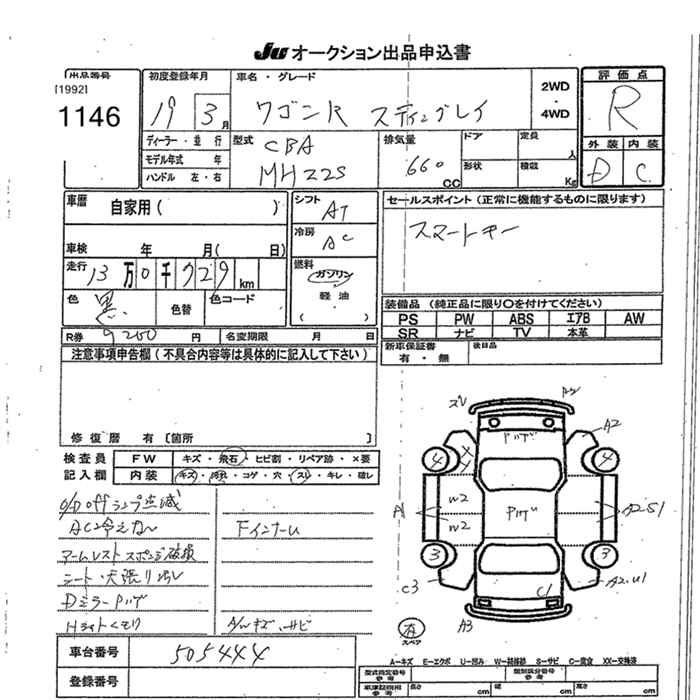 JU オークション出品申込書
出品番号 初度登録年月 車名・グレード 2WD ・ 4WD 評価点
[1992]
1146 19 3月 ワゴンR スティングレイ R
ディーラー・並行 型式 CBA 排気量 ドア 定員 人 外装 内装
モデル年式 年 MH22S 660 形状 積載 D C
ハンドル 左・右 CC Kg
車歴 自家用( ) シフト AT セールスポイント(正常に機能するものに限ります)
冷房 AC スマートキー
車検 年 月( 日)
走行 13万0千929km 燃料 ガソリン
軽油
( )
色 黒 色替 色コード 装備品(純正品に限り○を付けてください)
PS PW ABS エアB AW
SR ナビ TV 本革
R券 9260円 名変期限 月 日 新車保証書 有・無 後日品
注意事項申告欄(不具合内容等は具体的に記入して下さい)
修復歴 有[箇所 ]
検査員 FW キズ・飛石・ヒビ割・リペア跡・×要
記入欄 内装 キズ・汚れ・コゲ・穴・スレ・キレ・破レ
O/D offランプ点滅
AC冷えない Fインナーム
アームレストスポンジ破損
シート・天張り汚レ
Dミラー Pハゲ
Hライトくもり A/Wキズ・サビ
車台番号 505444
登録番号
スレ
A2
Pハゲ
4 4
W2
W2
A1 Pハゲ A2・S1
3 3
C3 C1 A2・U1
A3
有
スペア
A−キズ E−エクボ U−凹み W−補修跡 S−サビ C−腐食 XX−交換済
型式指定番号 参考 類別区分番号 参考
車庫証明用 参考 長さ cm 幅 cm 高さ cm